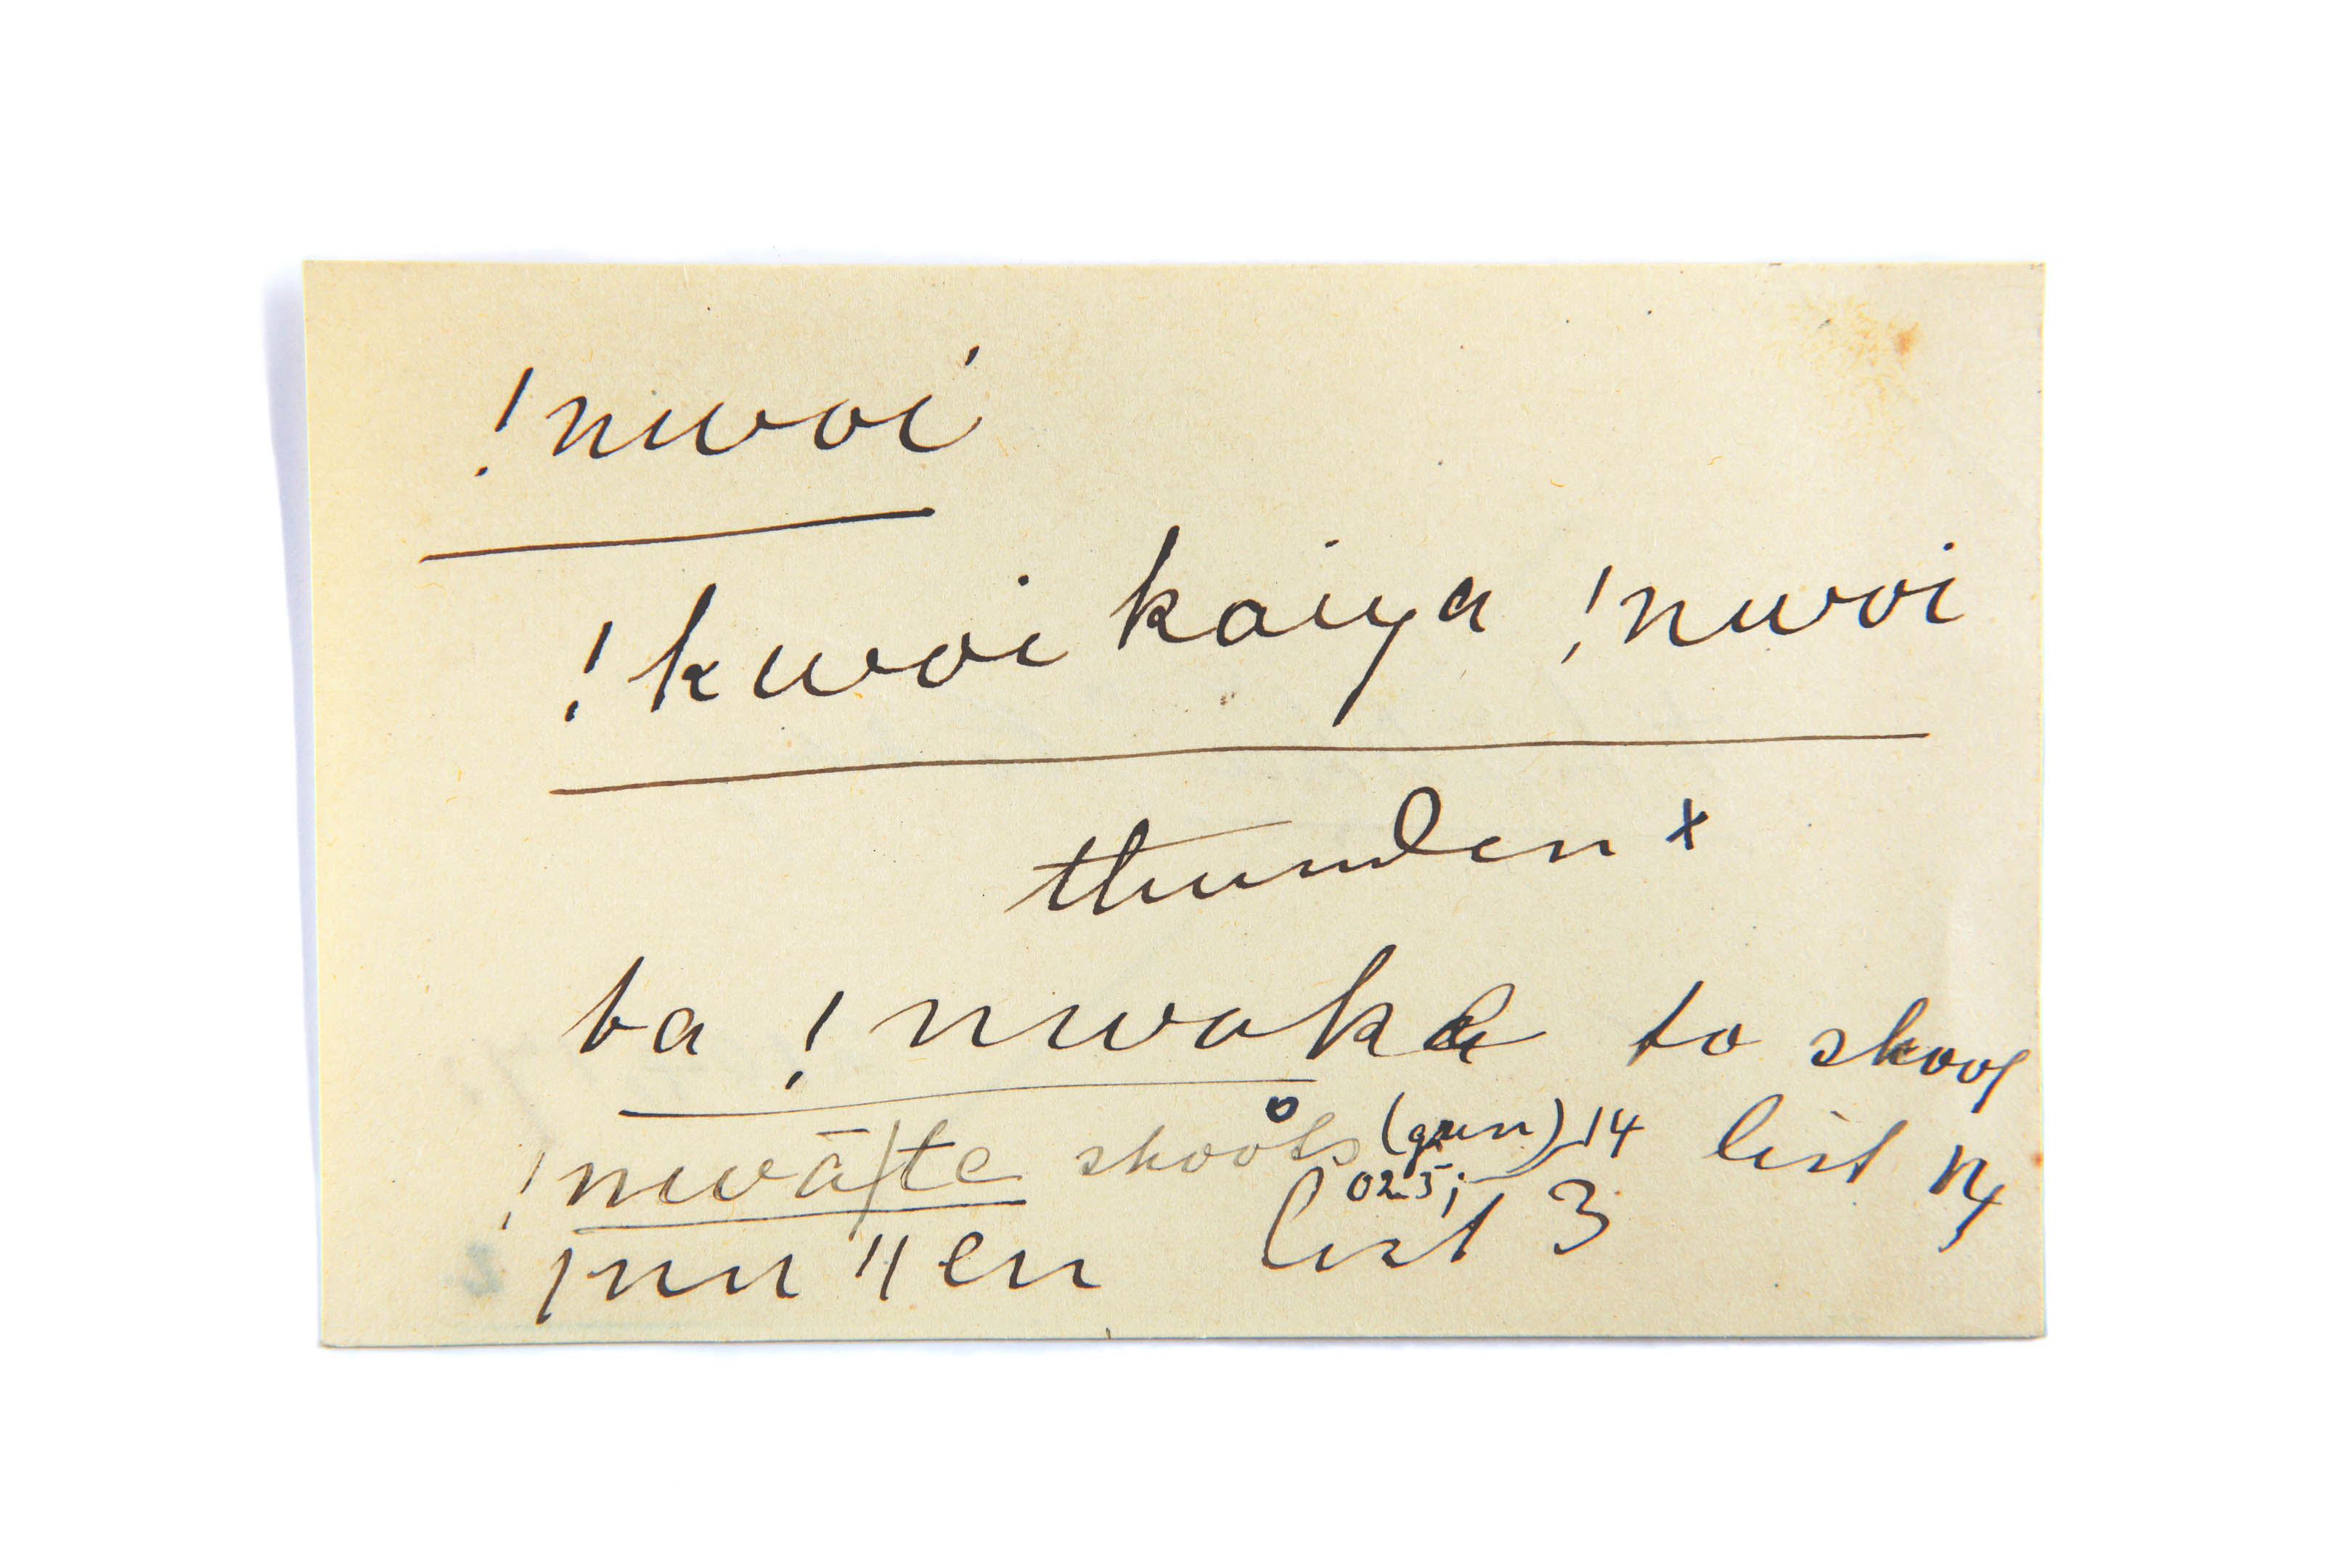 !nwoi
!kwoi kaiya !nwoi
thunder x
ba !nwaka to shoot
!nwā/te shoots (gun) 14 list 14
023;
|nu ǁen list 3